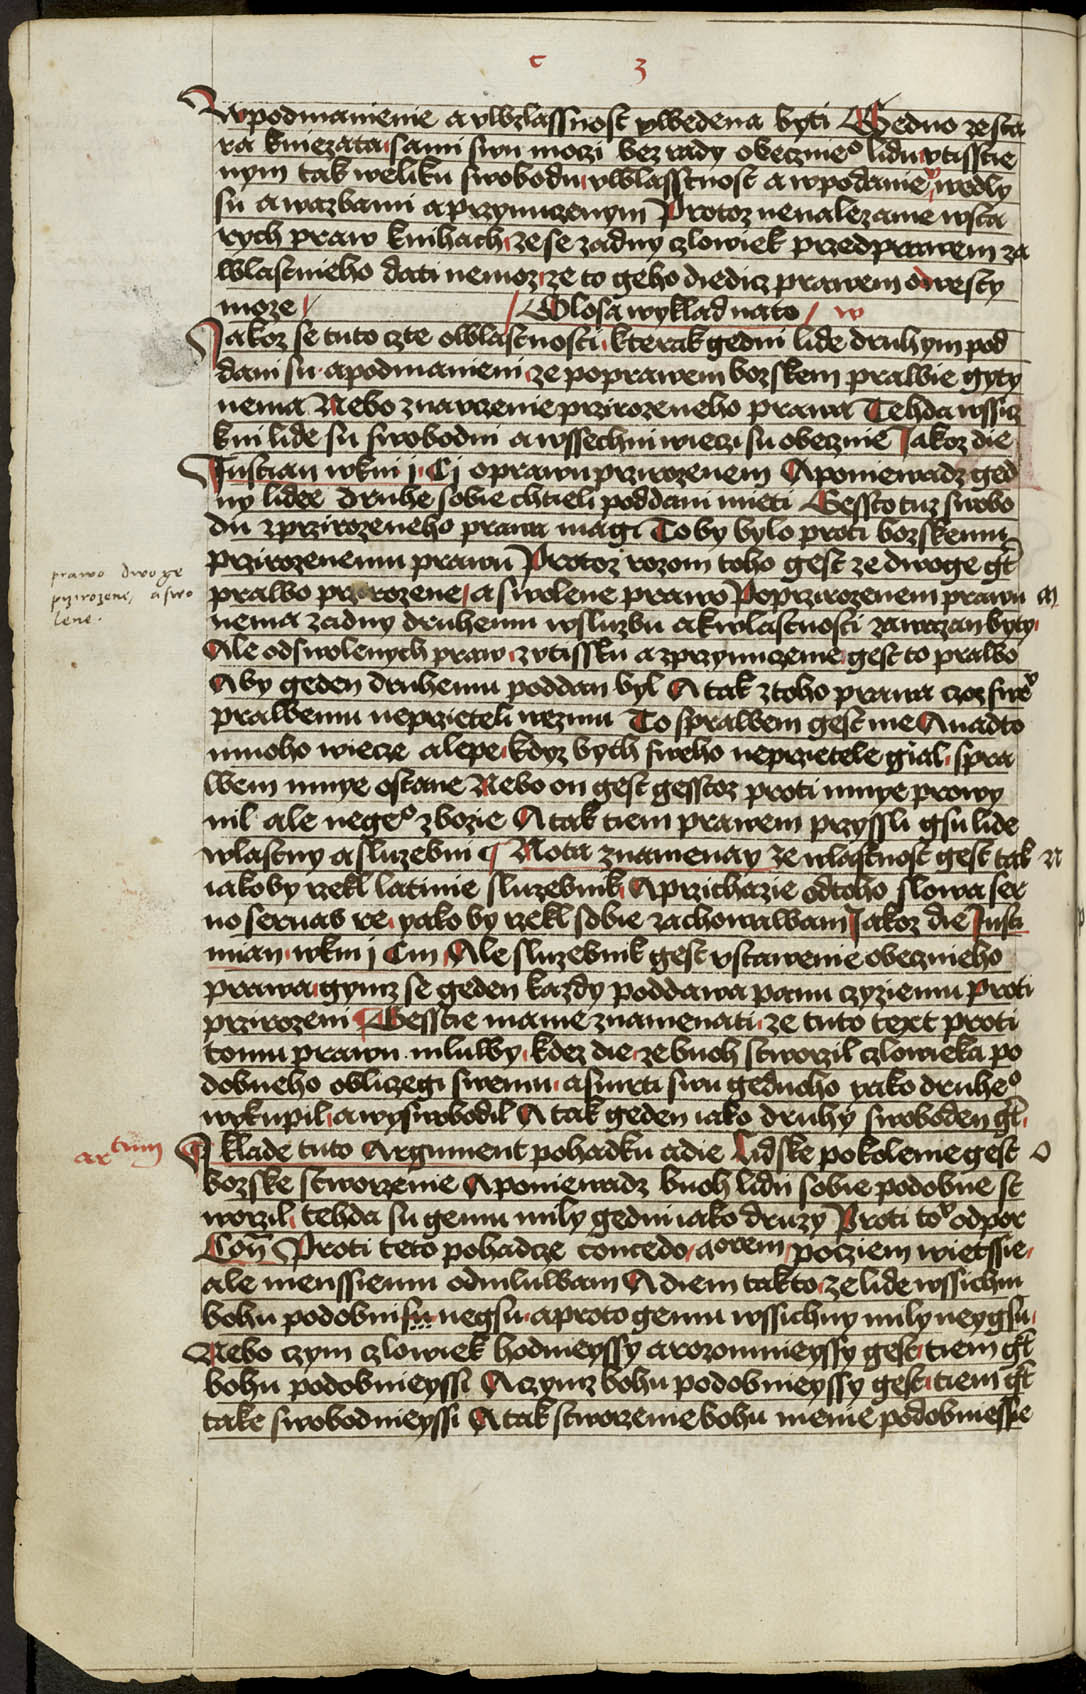 c 3
Wpodmanienie a vwlassnost vwedena byti Gedno zesta
ra kniezata sami swu moczi bez rady obeczneo lidu vtisstie
nym tak weliku swobodu vwlasstnost a wpodanie wedly
su a wazbami a przynuczenym Protoz nenalezame wsta
rych praw knihach ze se zadny czlowiek przed prawem za
wlastnieho dati nemoz ze to geho diedicz prawem odwesty
moze / / Glosa wyklad nato / w
Jakoz se tuto czte owlastnosti kterak gedni lide druhym pod
dani su a podmanieni ze poprawem bozskem prawie gyty
nema Nebo znawrzenie przirozeneho prawa Tehda wssicz
kni lide su swobodni a wssechni wieczi su obecznie Jakoz die
Justian wkni j Cj o prawu przirozenem A poniewadz ged
ny lidee druhe sobie chtieli poddani mieti Gessto tuz swobo
du zprzirozeneho prawa magi To by bylo proti bozskemu
przirozenemu prawu Protoz rozom toho gest ze dwoge gt
prawo przirozene / a swolene prawo Poprzirozenem prawu m
prawo dwoge
przirozene, a swo
lene.
nema zadny druhemu wsluzbu a kwlastnosti zawazan byty
Ale odswolenych praw z vtissku a zprzynuczenie gest to prawo
Aby geden druhemu poddan byl A tak ztoho prawa czoz swe
prawemu neprzieteli wezmu To sprawem gest me A nadto
mnoho wiecze a lepe kdyz bych sweho neprzietele gial spra
wem mnye ostane Nebo on gest gesstoz proti mnye prowy
nil ale ne geo zbozie A tak tiem prawem przyssli gsu lide
wlastny a sluzebni ¶ Nota znamenay ze wlastnost gest tak n
iakoby rzekl latinie sluzebnik A przichazie odtoho slowa ser
no seruas re yako by rzekl sobie zachowawam Jakoz die Justi
nian wkni j Cm Ale sluzebnik gest vstawenie obecznieho
prawa gymz se geden kazdy poddawa panu czyziemu Proti
przirozeni ¶ Gesstie mame znamenati ze tuto text proti
tomu prawu mluwy kdez die ze buoh stworzil czlowieka po
dobneho obliczegi swemu a smrti swu gednoho yako druheo
wykupil a wyswobodil A tak geden iako druhy swoboden gt
artum A klade tuto Argument pohadku a die Lidske pokolenie gest o
bozske stworzenie A poniewadz buoh lidi sobie podobne st
worzil tehda su gemu mily gedni iako druzy Proti to odpor
Con Proti teto pohadcze concedo, aorem, pocziem wietssie
ale menssiemu odmluwam A diem takto ze lide wssichni
bohu podobni su negsu a proto gemu wssichny mily neygsu
Nebo czym czlowiek hodnieyssy a rozomnieyssy gest tiem gt
bohu podobnieyssi A czymz bohu podobnieyssy gest tiem gt
take swobodnieyssi A tak stworzenie bohu menie podobniessie